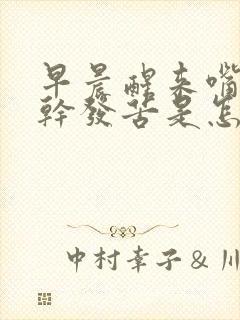 早晨醒来嘴
幹發苦是怎
中村幸子 & 川